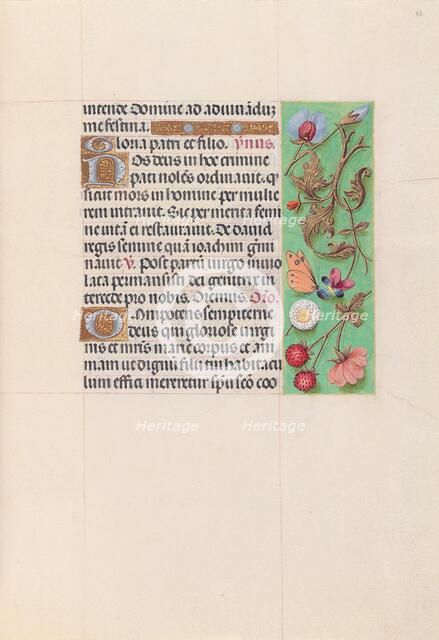 intende Domine ad adiuuandũz
me festina.
Gloria patri et filio. ỹnus.
Nos deus in hoc crimine
pati nolẽs ordinauit. q
sicut mors in homine per mulie
rem intrauit. Sic per mentis semi
ne uitã et restaurauit. De dauid
regis semine quã ioachim gin
nauit v̄. Post partũ uirgo inuio
lata permansisti dei genitrix in
tercede pro nobis. Oremus. Oro.
Omnipotens sempiterne
deus qui gloriose uirgi
nis et mr̃is marie corpus et ani
mam ut dignũ filii tui habitacu
lum effici mereretur spũ scõ coo
Heritage
Heritage
Heritage
Heritage
Heritage
Heritage